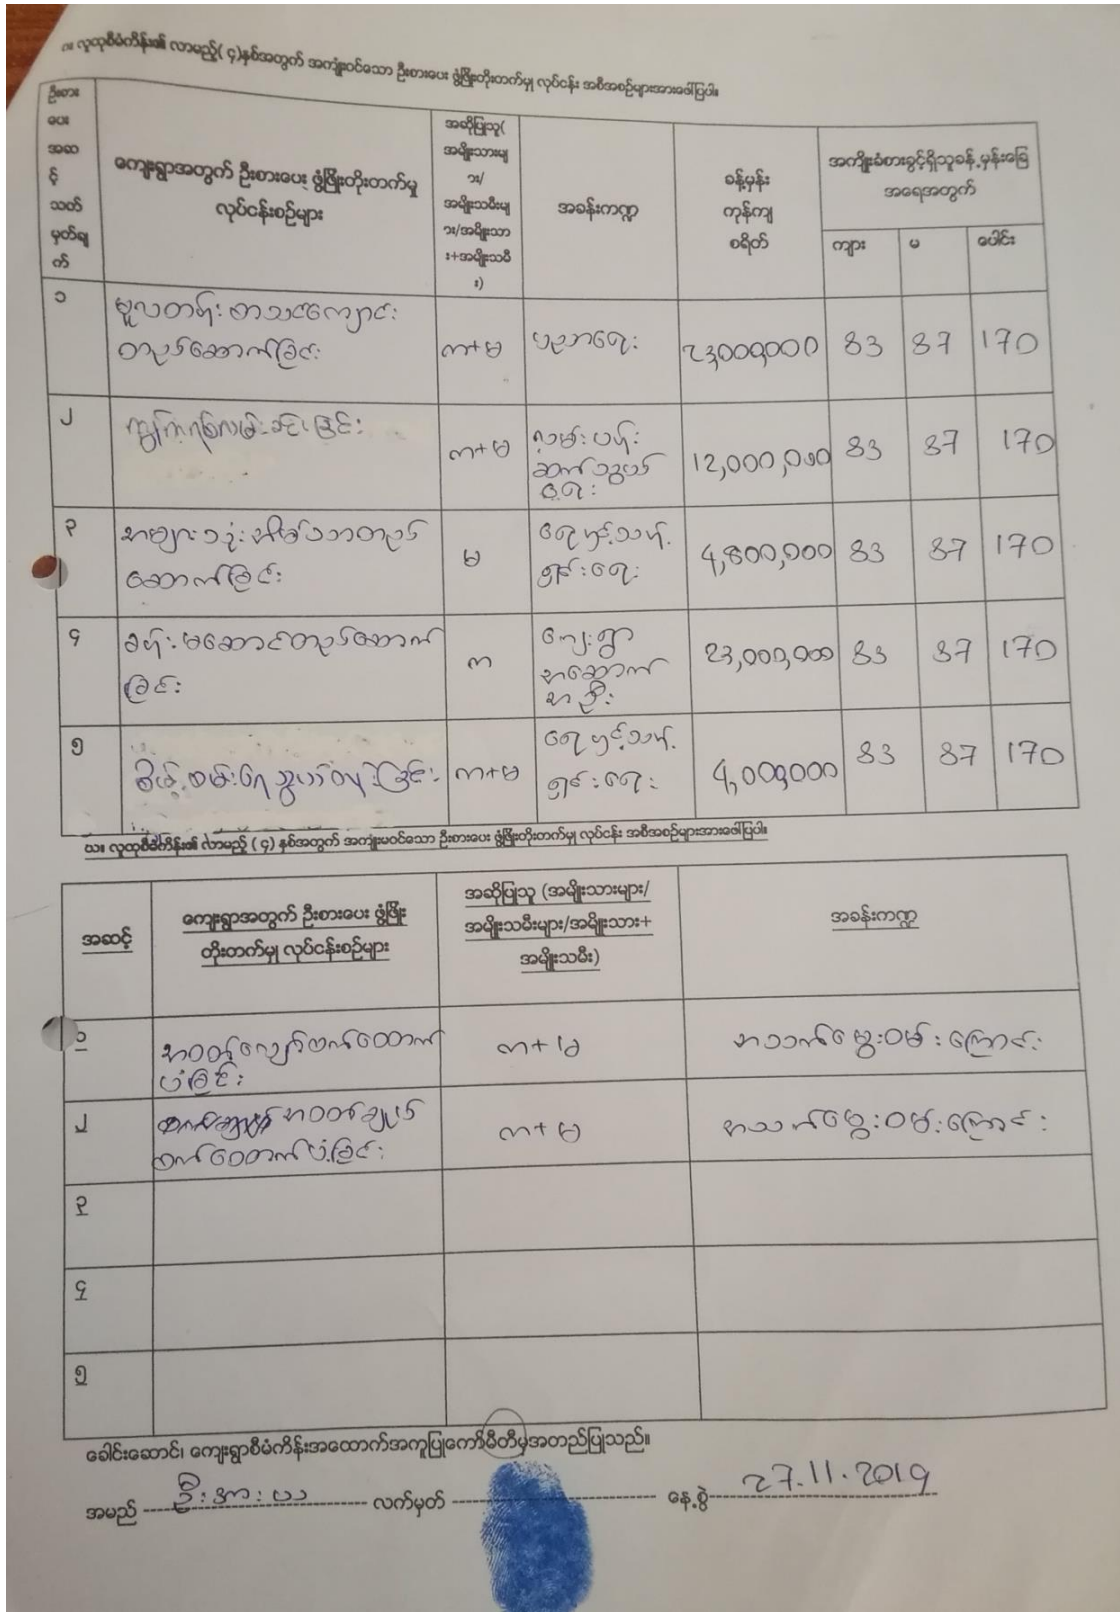 ၈။ လူထုစီမံကိန်း၏ လာမည့်(၄)နှစ်အတွက် အကျုံးဝင်သော ဦးစားပေး ဖွံ့ဖြိုးတိုးတက်မှု လုပ်ငန်း အစီအစဉ်များအားဖေါ်ပြပါ။
ဦးစား
ပေး
အဆ
င့်
သတ်
မှတ်ချ
က်
ကျေးရွာအတွက် ဦးစားပေး ဖွံ့ဖြိုးတိုးတက်မှု
လုပ်ငန်းစဉ်များ
အဆိုပြုသူ(
အမျိုးသားမျ
ား/
အမျိုးသမီးမျ
ား/အမျိုးသာ
း+အမျိုးသမီ
း)
အခန်းကဏ္ဍ
ခန့်မှန်း
ကုန်ကျ
စရိတ်
အကျိုးခံစားခွင့်ရှိသူခန့်မှန်းခြေ
အရေအတွက်
ကျား မ ပေါင်း
၁ မူလတန်း စာသင်ကျောင်း
တည်ဆောက်ခြင်း က+မ ပညာရေး 23,000,000 83 87 170
၂ လမ်းခင်းခြင်း က+မ လမ်းပန်း
ဆက်သွယ်
ရေး 12,000,000 83 87 170
၃ အများသုံးအိမ်သာတည်
ဆောက်ခြင်း မ ရေနှင့်သန့်
ရှင်းရေး 4,800,000 83 87 170
၄ ခန်းမဆောင်တည်ဆောက်
ခြင်း က ကျေးရွာ
အဆောက်
အဦး 23,000,000 83 87 170
၅ စိမ့်စမ်းရေသွယ်တန်းခြင်း က+မ ရေနှင့်သန့်
ရှင်းရေး 4,000,000 83 87 170
ဃ။ လူထုစီမံကိန်း၏ လာမည့် (၄) နှစ်အတွက် အကျုံးမဝင်သော ဦးစားပေး ဖွံ့ဖြိုးတိုးတက်မှု လုပ်ငန်း အစီအစဉ်များအားဖေါ်ပြပါ။
အဆင့်
ကျေးရွာအတွက် ဦးစားပေး ဖွံ့ဖြိုး
တိုးတက်မှု လုပ်ငန်းစဉ်များ
အဆိုပြုသူ (အမျိုးသားများ/
အမျိုးသမီးများ/အမျိုးသား+
အမျိုးသမီး)
အခန်းကဏ္ဍ
၁ အဝတ်လျှော်စက်ထောက်
ပံ့ခြင်း က+မ အသက်မွေးဝမ်းကြောင်း
၂ အဝတ်ချုပ်
စက်ထောက်ပံ့ခြင်း က+မ အသက်မွေးဝမ်းကြောင်း
၃
၄
၅
ခေါင်းဆောင်၊ ကျေးရွာစီမံကိန်းအထောက်အကူပြုကော်မီတီမှအတည်ပြုသည်။
အမည် ဦးအားယာ လက်မှတ် နေ့စွဲ 27.11.2019